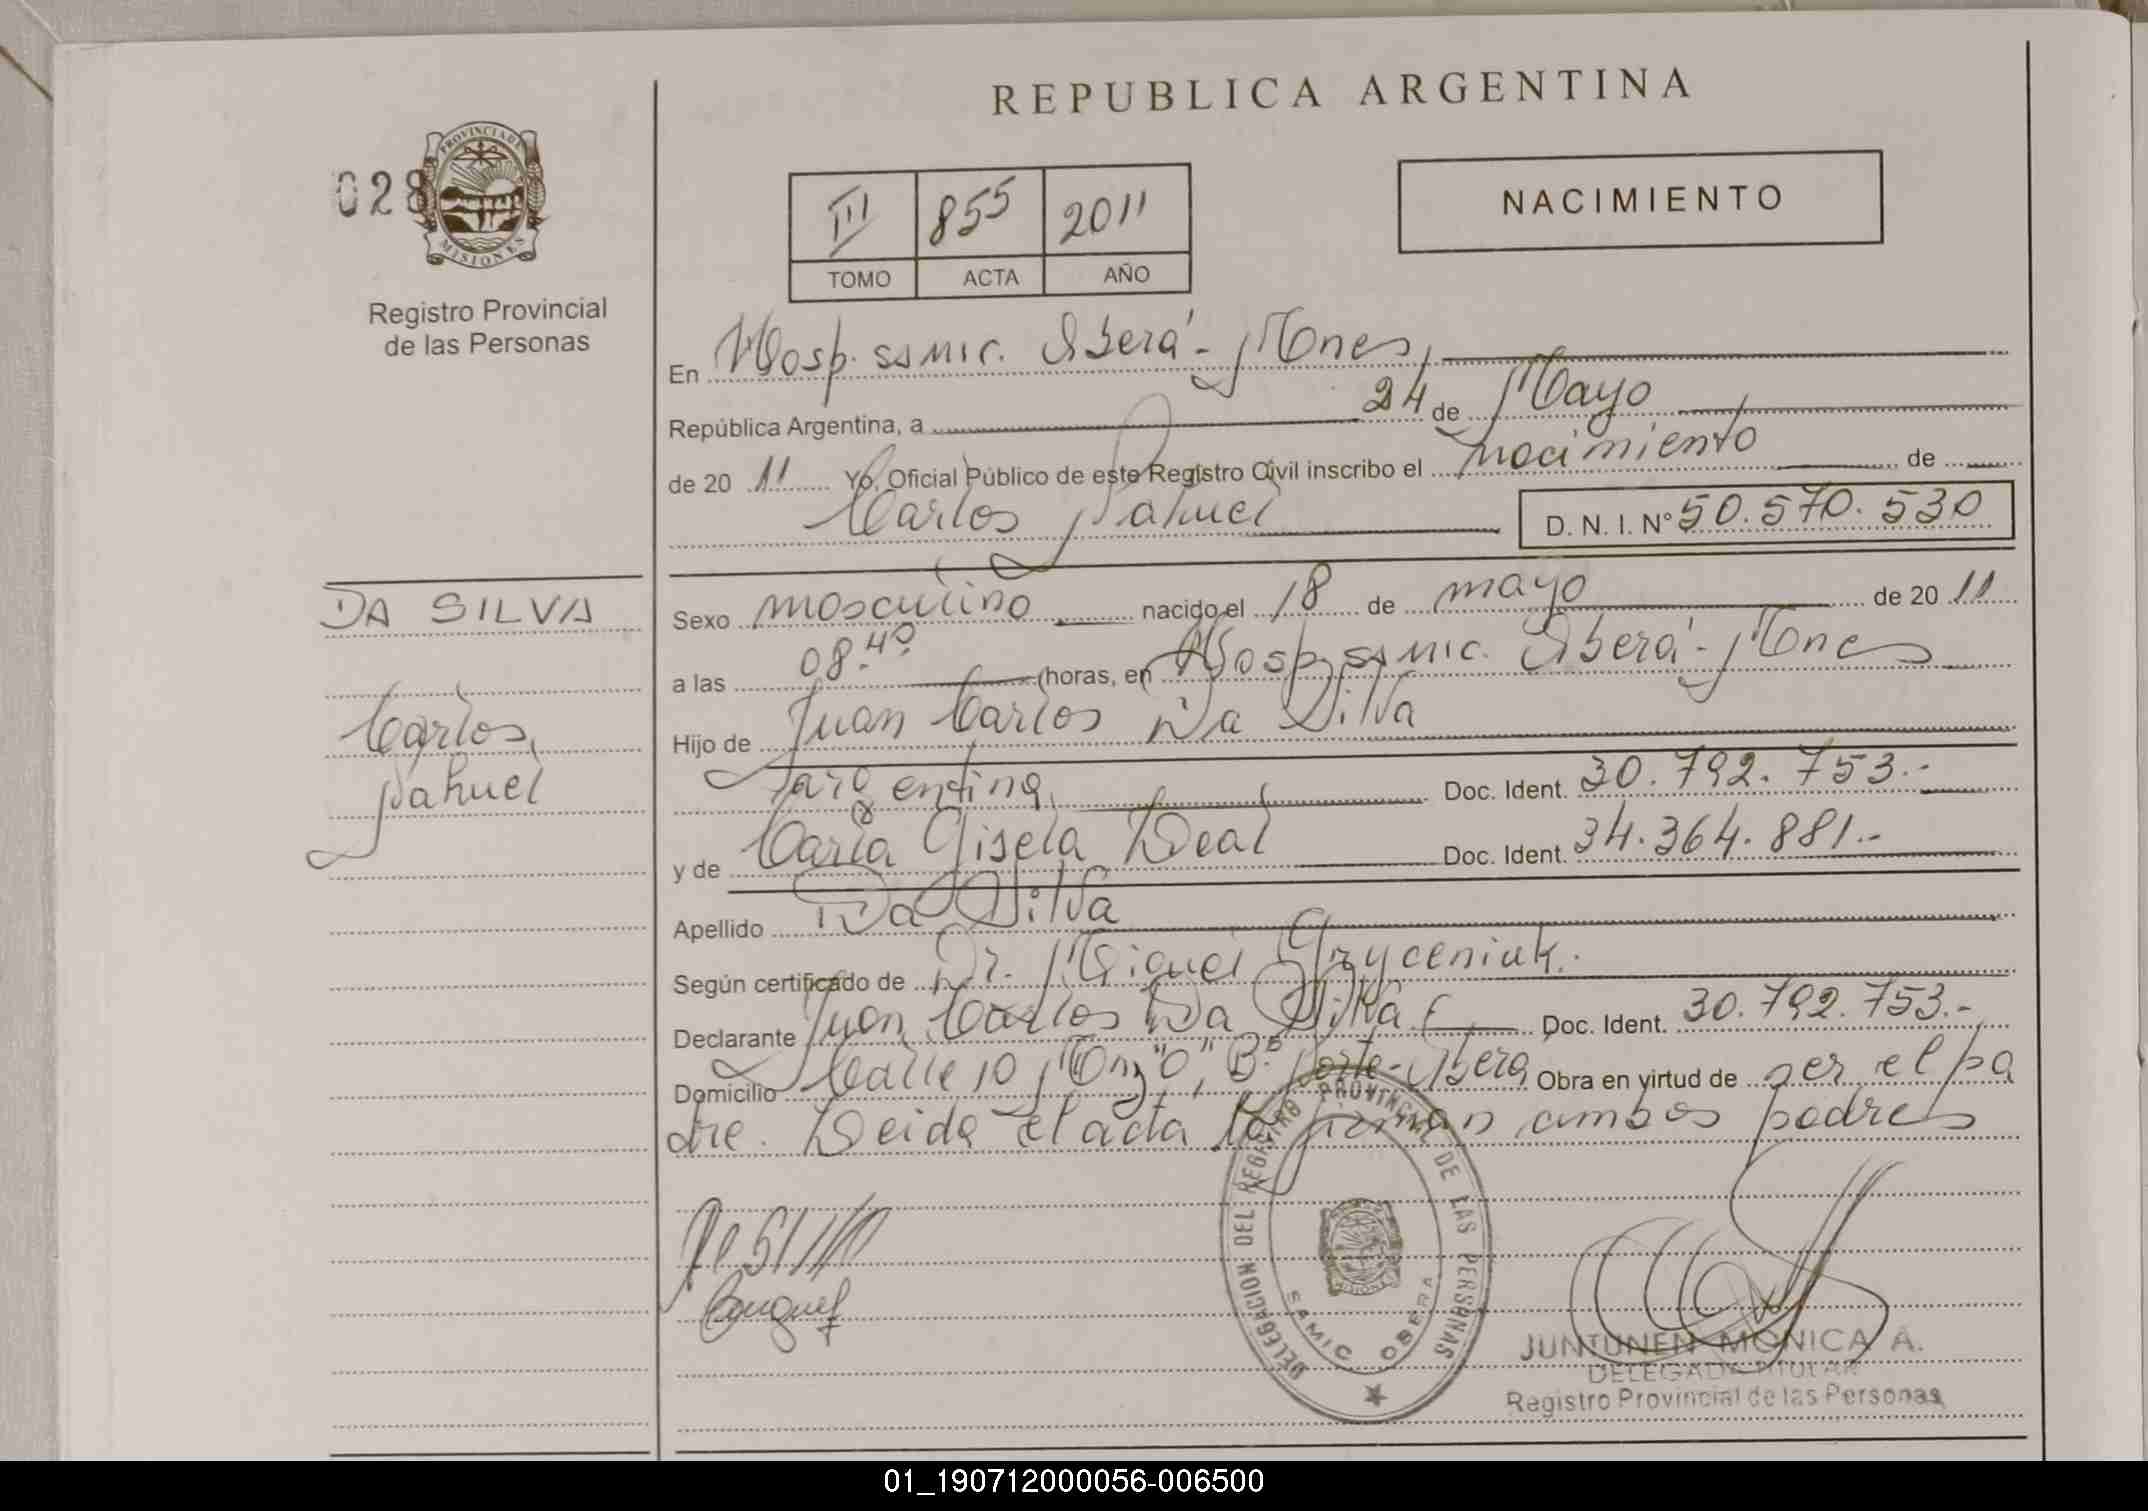 REPUBLICA ARGENTINA
028
PROVINCIA DE
MISIONES
Registro Provincial
de las Personas
III 855 2011
TOMO ACTA AÑO
NACIMIENTO
En Hosp. ssmic. Oberá - Mnes,
República Argentina, a 24 de Mayo
de 20 11 Yo, Oficial Público de este Registro Civil inscribo el nacimiento de
Carlos Nahuel D. N. I. Nº 50.570.530
DA SILVA
Carlos
Nahuel
Sexo masculino nacido el 18 de mayo de 20 11
a las 08.40 horas, en Hosp. ssmic. Oberá - Mnes
Hijo de Juan Carlos Da Silva
argentina Doc. Ident. 30.792.753.-
y de Carla Gisela Leal Doc. Ident. 34.364.881.-
Apellido Da Silva
Según certificado de Dr. Miguel Gryceniuk.
Declarante Juan Carlos Da Silva Doc. Ident. 30.792.753.-
Domicilio Calle 10 Mnz "O", Bº Norte - Oberá Obra en virtud de ser el pa
dre. Leida el acta la firman ambos padres
DELEGACION DEL REGISTRO PROVINCIAL DE LAS PERSONAS
SAMIC OBERA
JUNTUNEN MONICA A.
DELEGADA TITULAR
Registro Provincial de las Personas
01_190712000056-006500